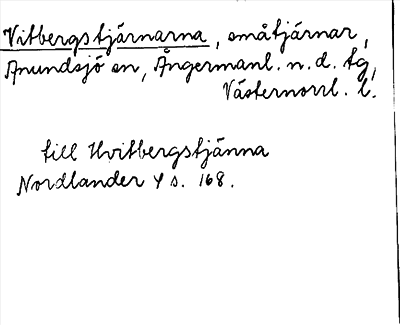 Vitbergstjärnarna, småtjärnar,
Anundsjö sn, Ångermanl. n. d. tg,
Västernorrl. l.
till Hvitbergstjänna
Nordlander 4 s. 168.